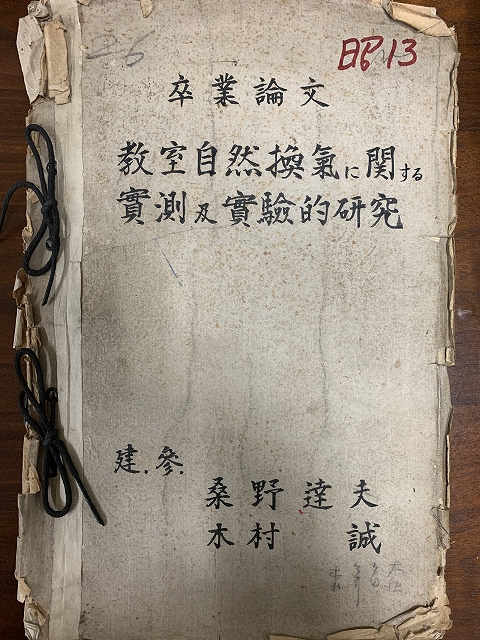 26
昭13
卒業論文
教室自然換氣に関する
實測及實驗的研究
建.参.
桑野達夫
木村誠